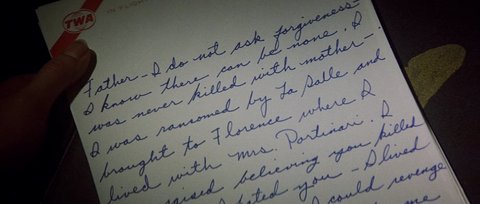 TWA
IN FLIGHT
Father - I do not ask forgiveness -
I know there can be none. I
was never killed with mother -
I was ransomed by La Salle and
brought to Florence where I
lived with Mrs. Portinari. I
raised believing you killed
hated you - I lived
I could revenge
me